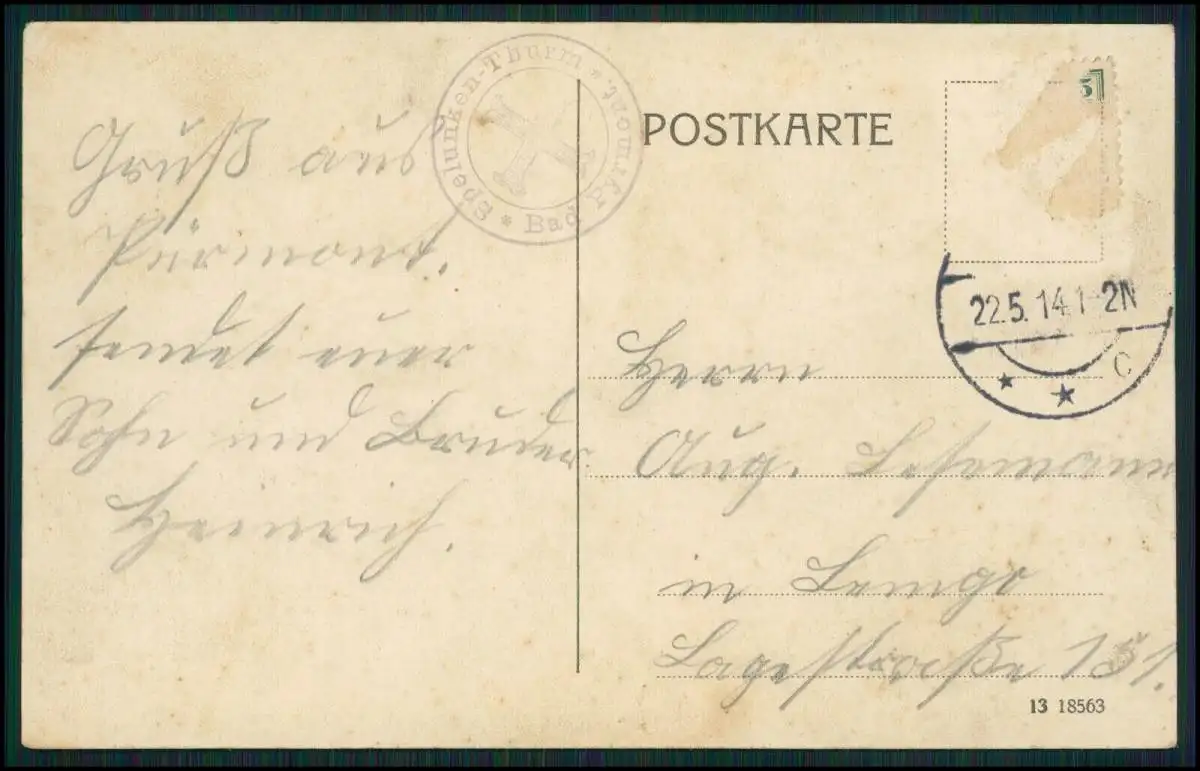 Gruß aus
Pürmont.
sendet euer
Sohn und Bruder
Heinrich.
Spelunken-Thurm * Bad Pyrmont. *
POSTKARTE
5
22.5.14.1-2N
* * C
Herrn
Aug. Lesemann
in Lemgo
Lagestraaße 151.
13 18563